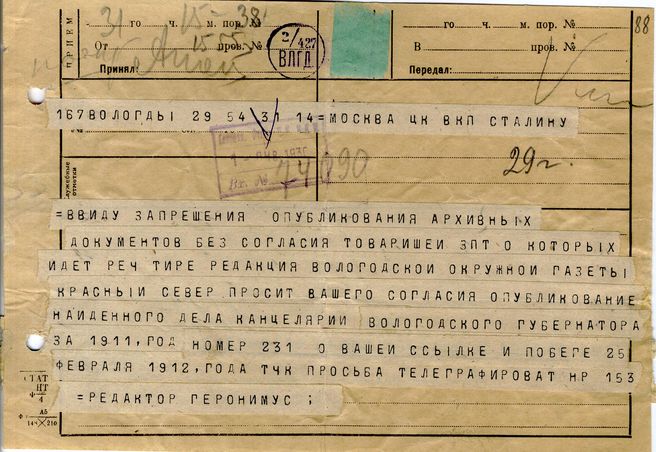 ПРИЕМ
31 го ч. м. пор. №
От 15 55 пров. №
Принял:
2/427
ВЛГД
го ч. м. пор. №
В пров. №
Передал:
88
167 ВОЛОГДЫ 29 54 31 14 = МОСКВА ЦК ВКП СТАЛИНУ
Вх. №
29 г.
отметки
=ВВИДУ ЗАПРЕШЕНИЯ ОПУБЛИКОВАНИЯ АРХИВНЫХ
ДОКУМЕНТОВ БЕЗ СОГЛАСИЯ ТОВАРИШЕИ ЗПТ О КОТОРЫХ
ИДЕТ РЕЧ ТИРЕ РЕДАКЦИЯ ВОЛОГОДСКОИ ОКРУЖНОИ ГАЗЕТЫ
КРАСНЫИ СЕВЕР ПРОСИТ ВАШЕГО СОГЛАСИЯ ОПУБЛИКОВАНИЕ
НАИДЕННОГО ДЕЛА КАНЦЕЛЯРИИ ВОЛОГОДСКОГО ГУБЕРНАТОРА
ЗА 1911, ГОД НОМЕР 231 О ВАШЕИ ССЫЛКЕ И ПОБЕГЕ 25
ФЕВРАЛЯ 1912, ГОДА ТЧК ПРОСЬБА ТЕЛЕГРАФИРОВАТ НР 153
=РЕДАКТОР ГЕРОНИМУС ;
СТАТ
НТ
Ф 4
Ф А5
148×210